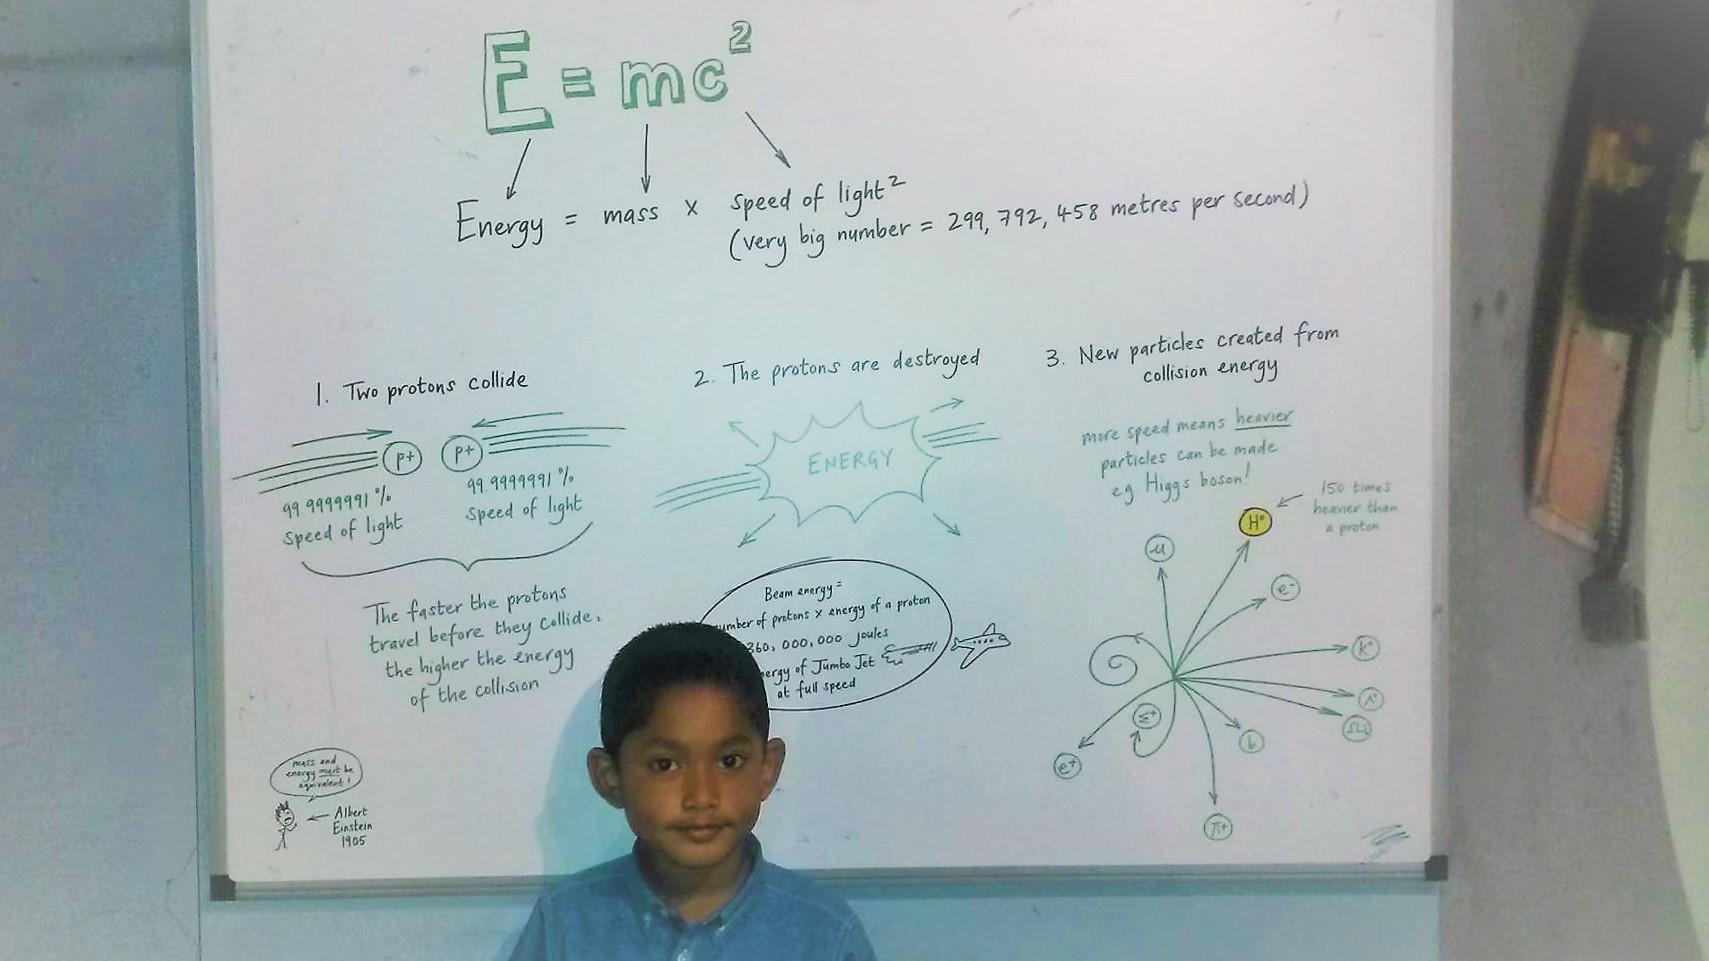 E = mc²
Energy = mass x speed of light²
(very big number = 299, 792, 458 metres per second)
1. Two protons collide
p+ p+
99.9999991 %
speed of light
99.9999991 %
speed of light
The faster the protons
travel before they collide,
the higher the energy
of the collision
mass and
energy must be
equivalent!
Albert
Einstein
1905
2. The protons are destroyed
ENERGY
Beam energy =
number of protons x energy of a proton
360, 000, 000 joules
energy of Jumbo Jet
at full speed
3. New particles created from
collision energy
more speed means heavier
particles can be made
eg Higgs boson!
150 times
heavier than
a proton
H°
μ
e-
K°
Λ°
Ω
b
Σ+
e+
π+